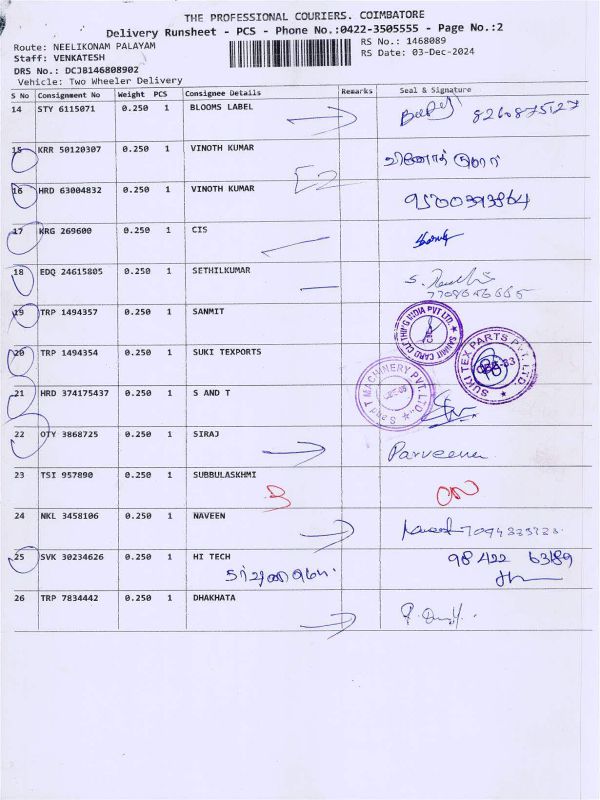 THE PROFESSIONAL COURIERS. COIMBATORE
Delivery Runsheet - PCS - Phone No.:0422-3505555 - Page No.:2
Route: NEELIKONAM PALAYAM
RS No.: 1468089
Staff: VENKATESH
RS Date: 03-Dec-2024
DRS No.: DCJB146808902
Vehicle: Two Wheeler Delivery
S No Consignment No Weight PCS Consignee Details Remarks Seal & Signature
14 STY 6115071 0.250 1 BLOOMS LABEL 8260875127
15 KRR 50120307 0.250 1 VINOTH KUMAR வினோத் குமார்
16 HRD 63004832 0.250 1 VINOTH KUMAR 9500393864
17 KRG 269600 0.250 1 CIS
18 EDQ 24615805 0.250 1 SETHILKUMAR
19 TRP 1494357 0.250 1 SANMIT
SANMIT CARD CLOTHING INDIA PVT LTD.
20 TRP 1494354 0.250 1 SUKI TEXPORTS
SUKI TEX PARTS PVT. LTD.
21 HRD 374175437 0.250 1 S AND T
S and T MACHINERY PVT. LTD.
22 OTY 3868725 0.250 1 SIRAJ Parveena
23 TSI 957890 0.250 1 SUBBULASKHMI
24 NKL 3458106 0.250 1 NAVEEN
25 SVK 30234626 0.250 1 HI TECH 98422 63189
26 TRP 7834442 0.250 1 DHAKHATA